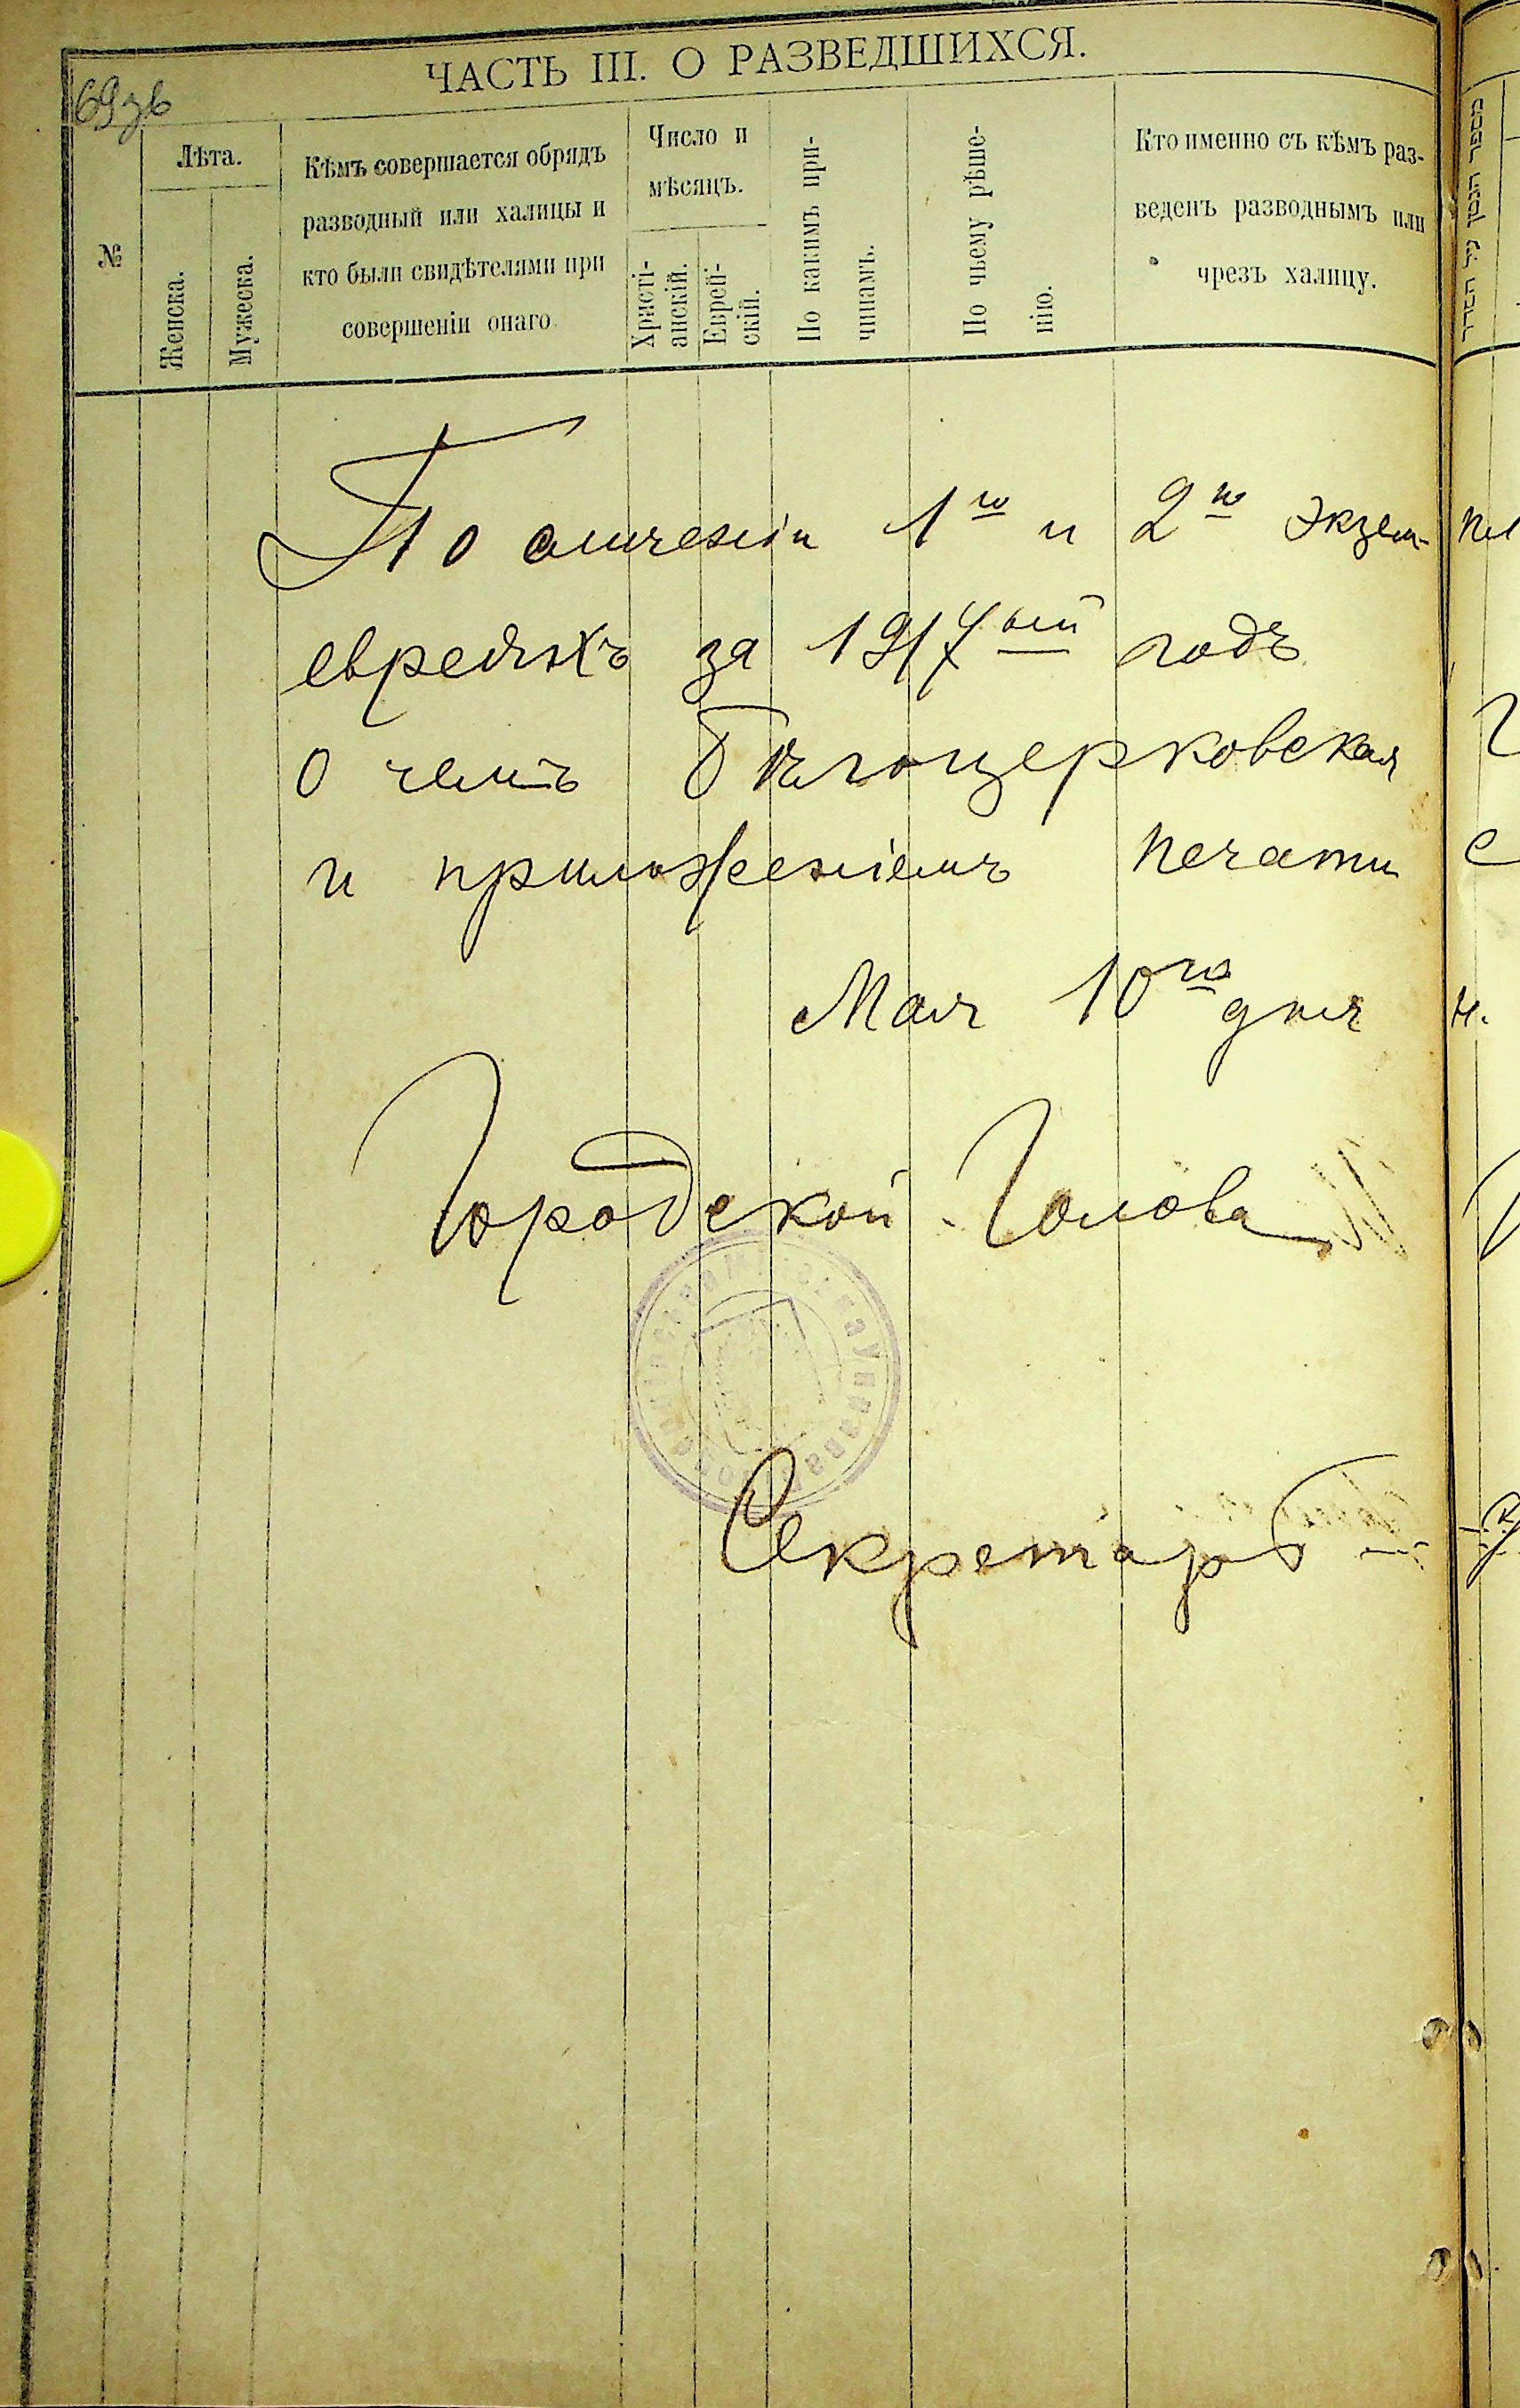 69зв
ЧАСТЬ III. О РАЗВЕДШИХСЯ.
№
Лѣта.
Женска.
Мужеска.
Кѣмъ совершается обрядъ
разводный или халицы и
кто были свидѣтелями при
совершеніи онаго
Число и
мѣсяцъ.
Христі-
анскій.
Еврей-
скій.
По какимъ при-
чинамъ.
По чьему рѣше-
нію.
Кто именно съ кѣмъ раз-
веденъ разводнымъ или
чрезъ халицу.
По сличеніи 1го и 2го экзем-
евреяхъ за 1917ый годъ
о чемъ Бѣлоцерковская
и приложеніемъ печати
Мая 10го дня
Городской Голова
Секретарь